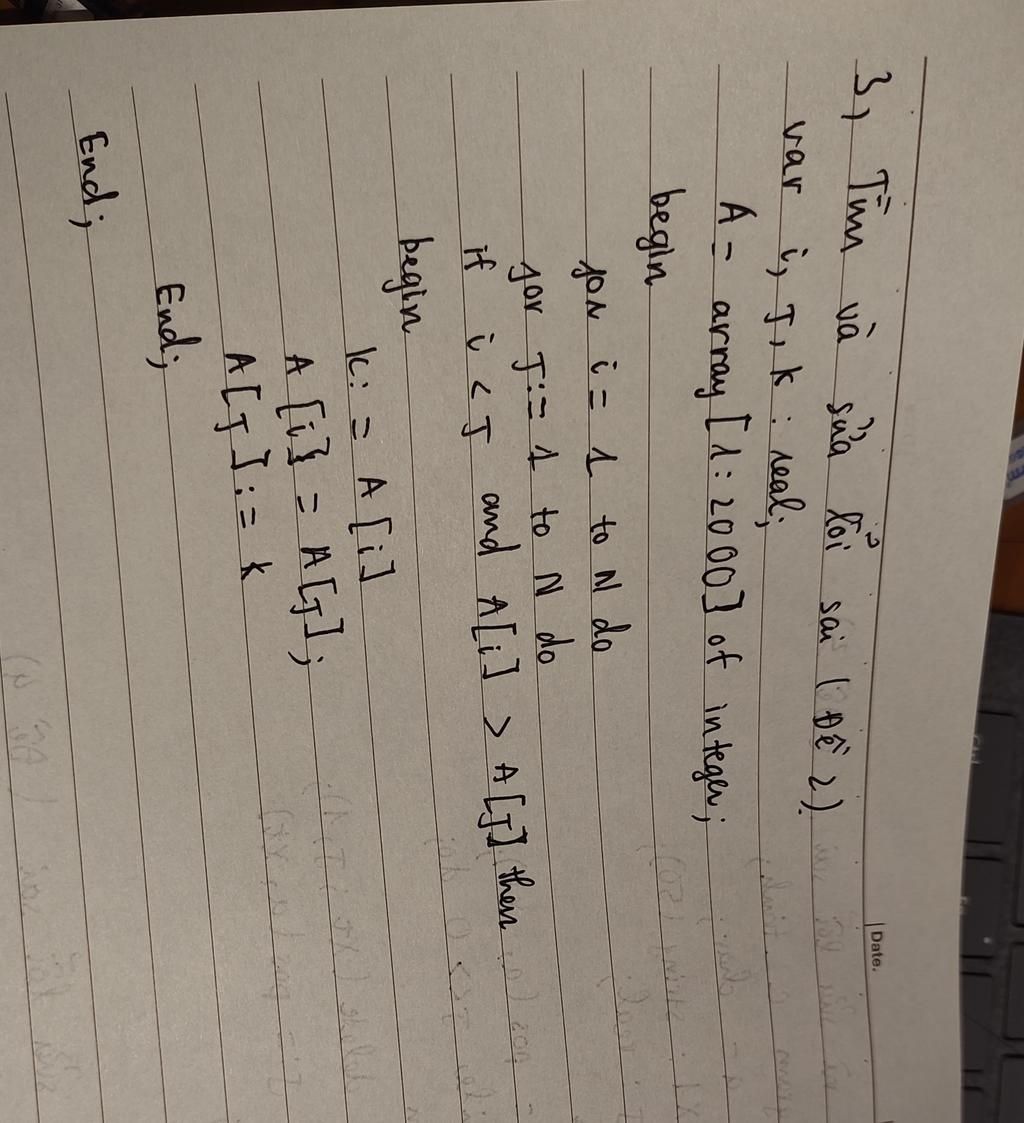 Date.
3, Tìm và sửa lỗi sai (Đề 2)
var i, J, k : real;
A = array [1 : 2000] of integer;
begin
for i = 1 to N do
for J := 1 to N do
if i < J and A[i] > A[J] then
begin
k := A[i]
A[i] = A[J];
A[J] := k
End;
End;